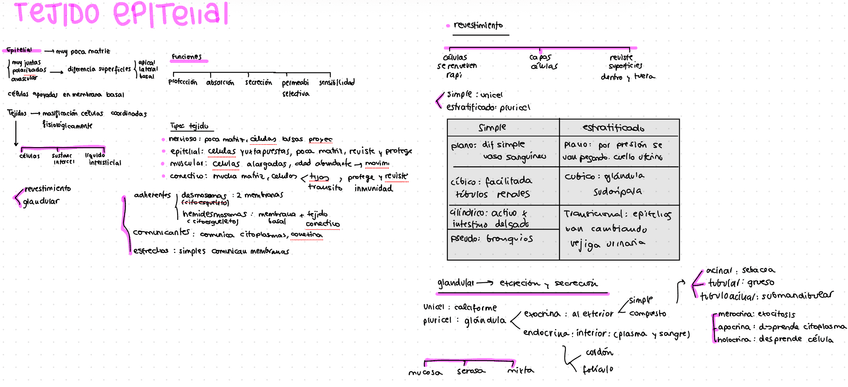 TEJIDO EPITElial
Epitelial → muy poca matriz
muy juntas
polarizadas → diferencia superficies
avascular
apical
lateral
basal
células apoyadas en membrana basal
Tejidos → masificación células coordinadas
fisiológicamente
células
líquido
intersticial
revestimiento
glandular
Funciones
protección absorción secreción permeabi sensibilidad
selectiva
Tipos tejido
nervioso: poca matriz, células largas proyec
epitelial: células yuxtapuestas, poca matriz, reviste y protege
muscular: células alargadas, abundante → movim
conectivo: mucha matriz, células fijas, protege y reviste
transito inmunidad
adherentes
desmosomas: 2 membranas
(citoesqueleto)
hemidesmosomas: membrana + tejido
(citoesqueleto) basal conectivo
comunicantes: comunica citoplasmas, conexina
estrechos: simples comunican membranas
revestimiento
células capas reviste
se renueven células superficies
rapi dentro y fuera
simple: unicel
estratificado: pluricel
Simple estratificado
plano: dif simple
vaso sanguíneo
plano: por presión se
van pegando. cuello uterino
cúbico: facilitada
túbulos renales
cubico: glándula
sudoripala
cilíndrico: activo y
intestino delgado
pseudo: bronquios
Transicional: epitelios
van cambiando
vejiga urinaria
glandular → excreción y secreción
unicel: caliciforme
pluricel: glándula
exocrina: al exterior
simple
compuesto
endocrina: interior: (plasma y sangre)
cordón
folículo
acinal: sebacea
tubular: grueso
tubuloacinal: submandibular
merocrina: exocitosis
apocrina: desprende citoplasma
holocrina: desprende célula
mucosa serosa mixta